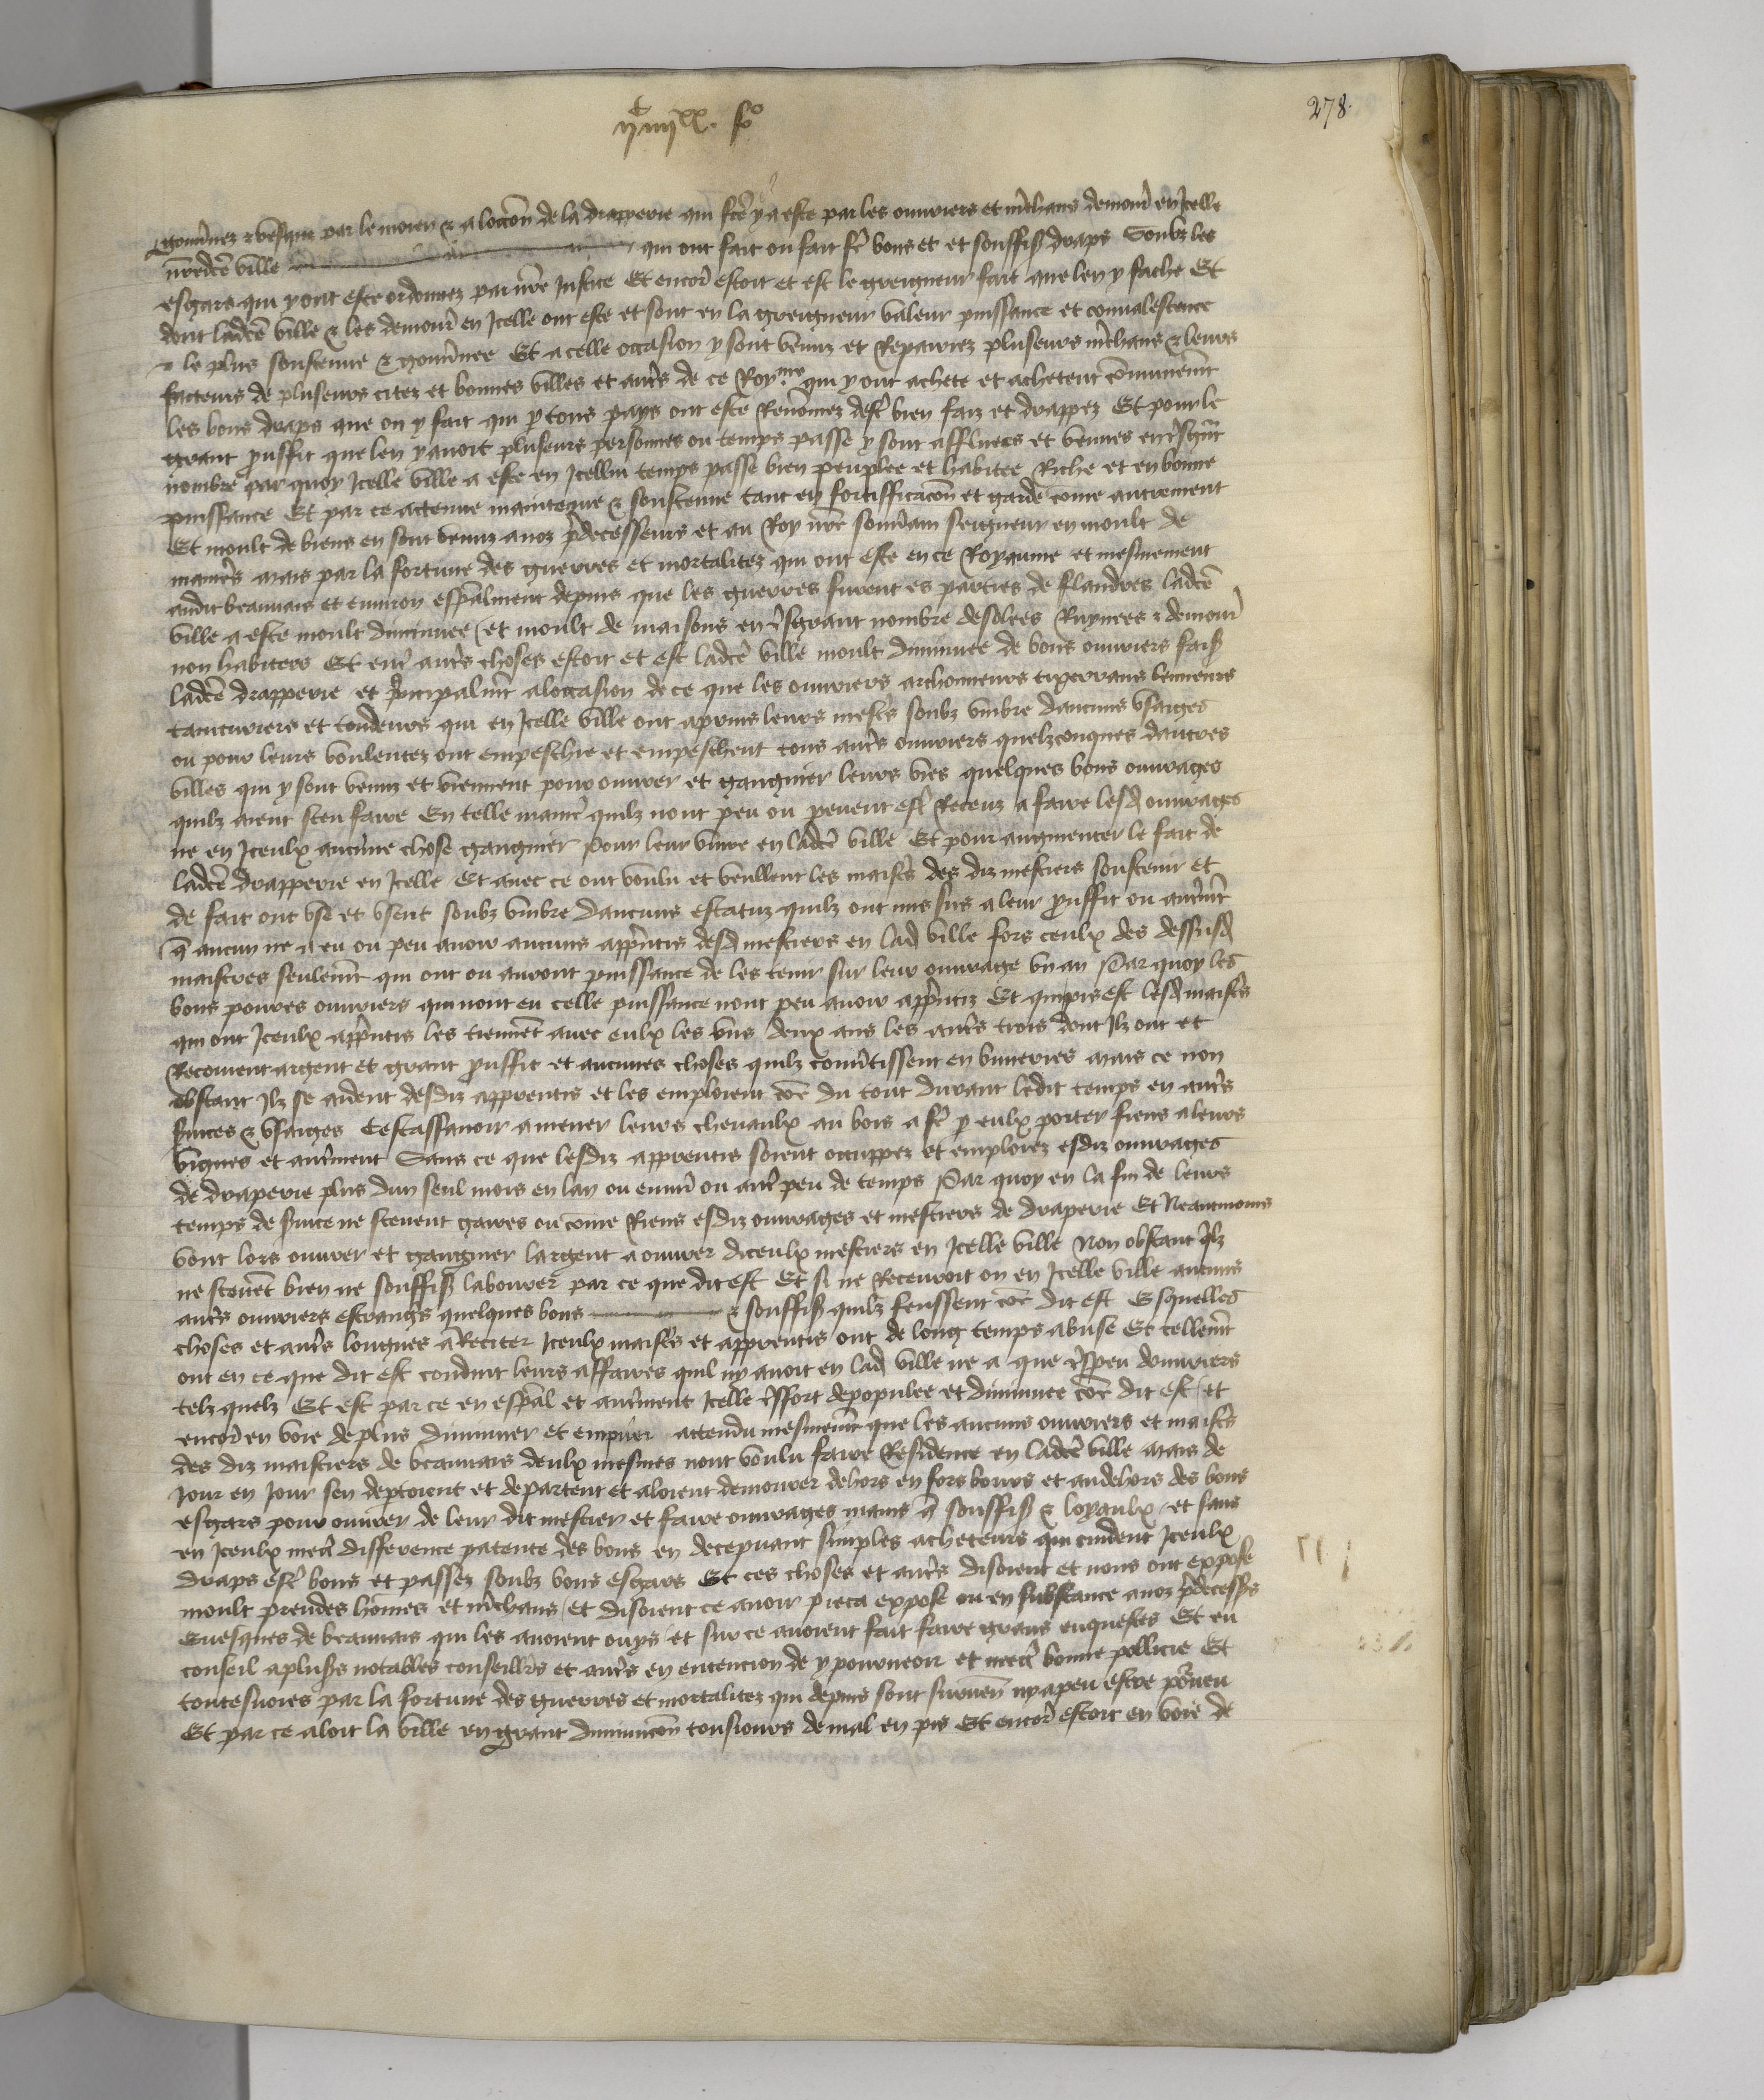 278.
IIc IIIIxx. fo
gouvnez & vesquz par le moien & aloccon de la drapperie qui fcē y a este par les ouvriers et mchans demour en Icelle
nredcē ville qui ont fait ou fait fe bons et et souffis draps Soubz les
esgars qui y ont este ordonnez par nre Justice Et encor estoit et est le greigneur fait que len y sache Et
dont ladcē ville & les demour en Icelle ont este et sont en la greigneur valeur puissance et convalescence
& le plus soustenue & gouvnee Et a celle occasion y sont venuz et Repairez pluseurs mchans & leurs
facteurs de pluseurs citez et bonnes villes et autrs de ce Royme qui y ont achete et achetent cōmunemt
les bons draps que on y fait qui p tous pays ont este Renōmez destr bien faiz et drappez Et pour le
grant prouffit que len y avoit pluseurs personnes ou temps passe y sont affluees et venues en trsgnt
nombre par quoy Icelle ville a este en Icellui temps passe bien peuplee et habitee Riche et en bonne
puissance Et par ce attenue maintenue & soustenue tant en fortifficacōn et garde cōme autrement
Et moult de biens en sont venuz a noz pdecesseurs et au Roy nre souvain seigneur en moult de
manirs Mais par la fortune des guerres et mortalitez qui ont este en ce Royaume et mesmement
audit beauvais et environ espalment depuis que les guerres furent es parties de flandres ladcē
ville a este moult diminuee / et moult de maisons en trsgrant nombre desolees Ruynees & demour
non habitees Et entr autrs choses estoit et est ladcē ville moult diminuee de bons ouvriers fais
ladcē drapperie et principalmt a loccasion de ce que les ouvriers archonneurs tixerrans laneurs
tainturiers et tondeurs qui en Icelle ville ont apprins leurs mestrs soubz umbre daucuns usaiges
ou pour leurs voulentez ont empeschie et empeschent tous autrs ouvriers quelzconques dautres
villes qui y sont venuz et viennent pour ouvrer et gaigner leurs vies quelques bons ouvrages
quilz aient sceu faire En telle manir quilz nont peu ou peuent estr Receuz a faire lesd ouvrages
ne en Iceulx aucune chose gaigner pour leur vivre en ladcē ville Et pour augmenter le fait de
ladcē drapperie en Icelle Et avec ce ont voulu et veullent les maistrs des diz mestiers soustenir et
de fait ont use et usent soubz umbre daucuns estatuz quilz ont mis sus a leur prouffit ou autremt
q aucun ne a eu ou peu avoir aucuns apprntis desd mestiers en lad ville fors ceulx des dessusd
maistres seulemt qui ont ou auront puissance de les tenir sur leur ouvrage un an Par quoy les
bons povres ouvriers qui nont eu celle puissance nont peu avoir apprntiz Et qui pis est lesd maistrs
qui ont Iceulx apprntis les tiennēt avec eulx les uns deux ans les autrs trois dont Ilz ont et
Recoivent argent et grant prouffit et aucunes choses quilz convtissent en buveries Mais ce non
obstant Ilz se aident desdiz apprentis et les emploient cōe du tout durant ledit temps en autrs
svices & usaiges Cestassavoir a mener leurs chevaulx au bois a fe p eulx porter fiens a leurs
vignes et autrment Sans ce que lesdiz apprentis soient occuppez et emploiez esdiz ouvrages
de draperie plus dun seul mois en lan ou envir ou autr peu de temps Par quoy en la fin de leurs
temps de svice ne scevent gaires ou cōme Riens esdiz ouvrages et mestiers de draperie Et Neantmoins
vont lors ouvrer et gaigner largent a ouvrer diceulx mestiers en Icelle ville Non obstant qlz
ne scevēt bien ne souffis labourer par ce que dit est Et si ne Recevroit on en Icelle ville aucuns
autrs ouvriers estrangrs quelques bons & souffis quilz feussent cōe dit est Esquelles
choses et autrs longues a Reciter Iceulx maistrs et apprentis ont de long temps abuse Et tellemt
ont en ce que dit est conduit leurs affaires quil ny avoit en lad ville ne a que trspeu douvriers
telz quelz Et est par ce en espal et autrment Icelle trsfort depopulee et diminuee cōe dit est / et
encor en voie de plus diminuer et empirer attendu mesmemt que les aucuns ouvriers et maistrs
des diz maistiers de beauvais deulx mesmes nont voulu faire Residence en ladcē ville Mais de
Jour en Jour sen deptoient et departent et aloient demourer dehors en forsbours et audehors des bons
esgars pour ouvrer de leur dit mestier et faire ouvrages mains q souffis & loyaulx / et sans
en Iceulx mectr difference patente des bons en decepvant simples acheteurs qui cuident Iceulx
draps estr bons et passez soubz bons esgars Et ces choses et autrs disoient et nous ont expose
moult preudes hōmes et mchans / et disoient ce avoir pieca expose ou en substance a noz pdecessrs
Evesques de beauvais qui les avoient ouys / et sur ce avoient fait faire grans enquestes Et eu
conseil a plusrs notables conseillrs et autrs en entencion de y pourveoir et mectr bonne pollicie Et
toutesvoies par la fortune des guerres et mortalitez qui depuis sont survēn ny a peu estre prveu
Et par ce aloit la ville en grant diminucōn tousiours de mal en pis Et encor estoit en voie de